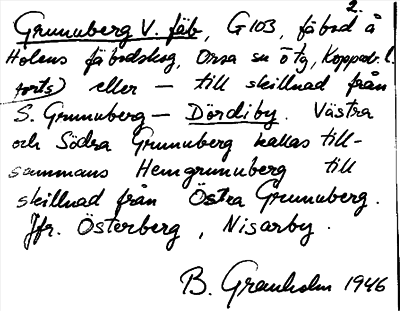 2.
Grunuberg V. fäb, G103, fäbod å
Holens fäbodskog, Orsa sn ötg, Kopparb. l.
forts) eller — till skillnad från
S. Grunuberg — Dördiby. Västra
och Södra Grunuberg kallas till-
sammans Hemgrunuberg till
skillnad från Östra Grunuberg.
Jfr. Österberg, Nisarby.
B. Granholm 1946